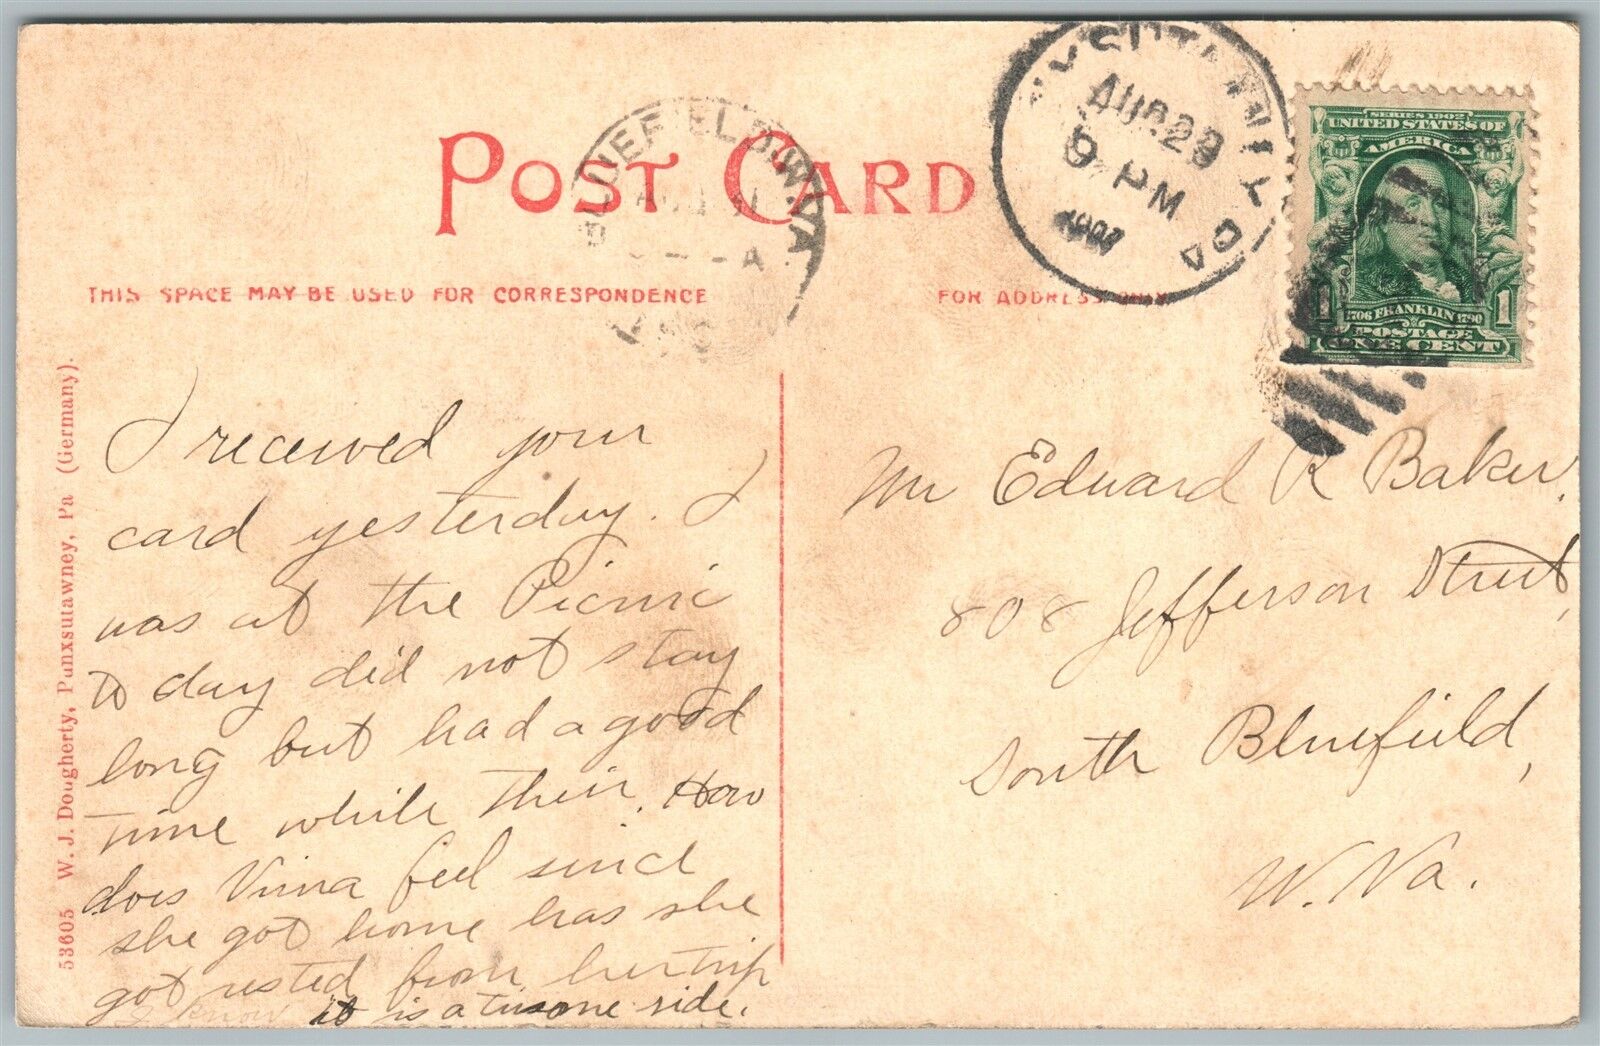 POST CARD
BLUEFIELD W.VA
AUG 31
AUG 29
9 PM
1907
PA
SERIES 1902
UNITED STATES OF
AMERICA
1706 FRANKLIN 1790
1 1
POSTAGE
ONE CENT
THIS SPACE MAY BE USED FOR CORRESPONDENCE
FOR ADDRESS ONLY
53605 W. J. Dougherty, Punxsutawney, Pa (Germany).
I received your
card yesterday. I
was at the Picnic
to day did not stay
long but had a good
time while their. How
does Vinna feel since
she got home has she
got rested from her trip
I know it is a tiresome ride.
Mr Edward R Baker.
808 Jefferson Street,
South Bluefield,
W. Va.